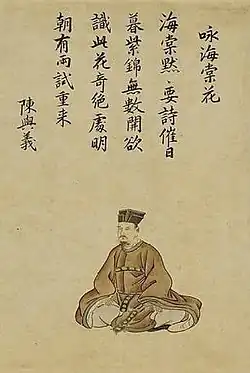 咏海棠花
海棠黙〻要詩催日
暮紫錦無數開欲
識此花奇絶處明
朝有雨試重来
陳與義